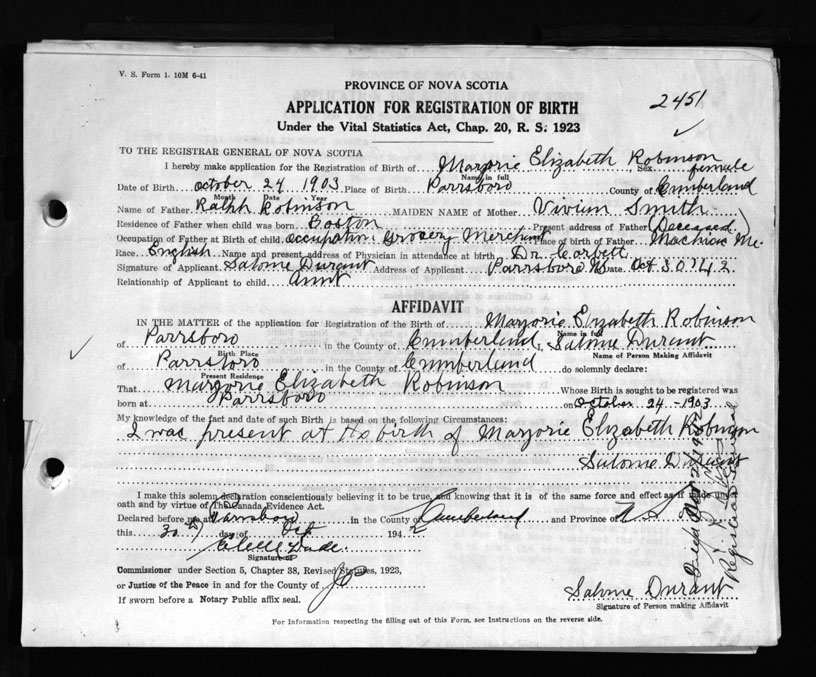 V. S. Form 1. 10M 6-41
PROVINCE OF NOVA SCOTIA
2451
APPLICATION FOR REGISTRATION OF BIRTH
Under the Vital Statistics Act, Chap. 20, R. S. 1923
TO THE REGISTRAR GENERAL OF NOVA SCOTIA
I hereby make application for the Registration of Birth of Marjorie Elizabeth Robinson Sex female
Name in full
Date of Birth October 24 1903 Place of Birth Parrsboro County of Cumberland
Month Date Year
Name of Father Ralph Robinson MAIDEN NAME of Mother Vivian Smith
Residence of Father when child was born Boston Present address of Father (Deceased)
Occupation of Father at Birth of child occupation Grocery Merchant Place of birth of Father Machias Me.
Race English Name and present address of Physician in attendance at birth Dr. Corbett
Signature of Applicant Salome Durant Address of Applicant Parrsboro NS Date Oct 30 1942
Relationship of Applicant to child Aunt
AFFIDAVIT
IN THE MATTER of the application for Registration of the Birth of Marjorie Elizabeth Robinson
Name in full
of Parrsboro in the County of Cumberland, Salome Durant
Birth Place Name of Person Making Affidavit
of Parrsboro in the County of Cumberland do solemnly declare:
Present Residence
That Marjorie Elizabeth Robinson Whose Birth is sought to be registered was
born at Parrsboro on October 24-1903
My knowledge of the fact and date of such Birth is based on the following Circumstances:
I was present at the birth of Marjorie Elizabeth Robinson
Salome Durant
I make this solemn declaration conscientiously believing it to be true, and knowing that it is of the same force and effect as if made under
oath and by virtue of The Canada Evidence Act.
Declared before me at Parrsboro in the County of Cumberland and Province of N S
this 30th day of Oct 1942
Signature of
Commissioner under Section 5, Chapter 38, Revised Statutes, 1923,
or Justice of the Peace in and for the County of JP
If sworn before a Notary Public affix seal.
Salome Durant
Signature of Person making Affidavit
For Information respecting the filling out of this Form, see Instructions on the reverse side.